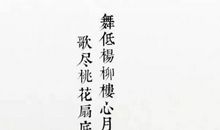 舞低楊柳樓心月
歌尽桃花扇底